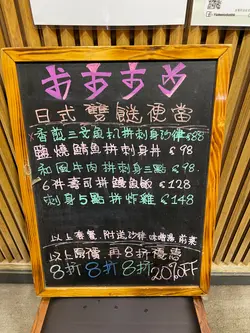 日式雙餸便當
香煎三文魚扒拼刺身沙律 $88
鹽燒鯖魚拼刺身丼 $98
和風牛肉拼刺身三點 $98
6件壽司拼鰻魚飯 $128
刺身5點拼炸雞 $148
以上套餐 附送沙律 味噌湯 前菜
以上原價 再8折優惠
8折 8折 8折 20%OFF